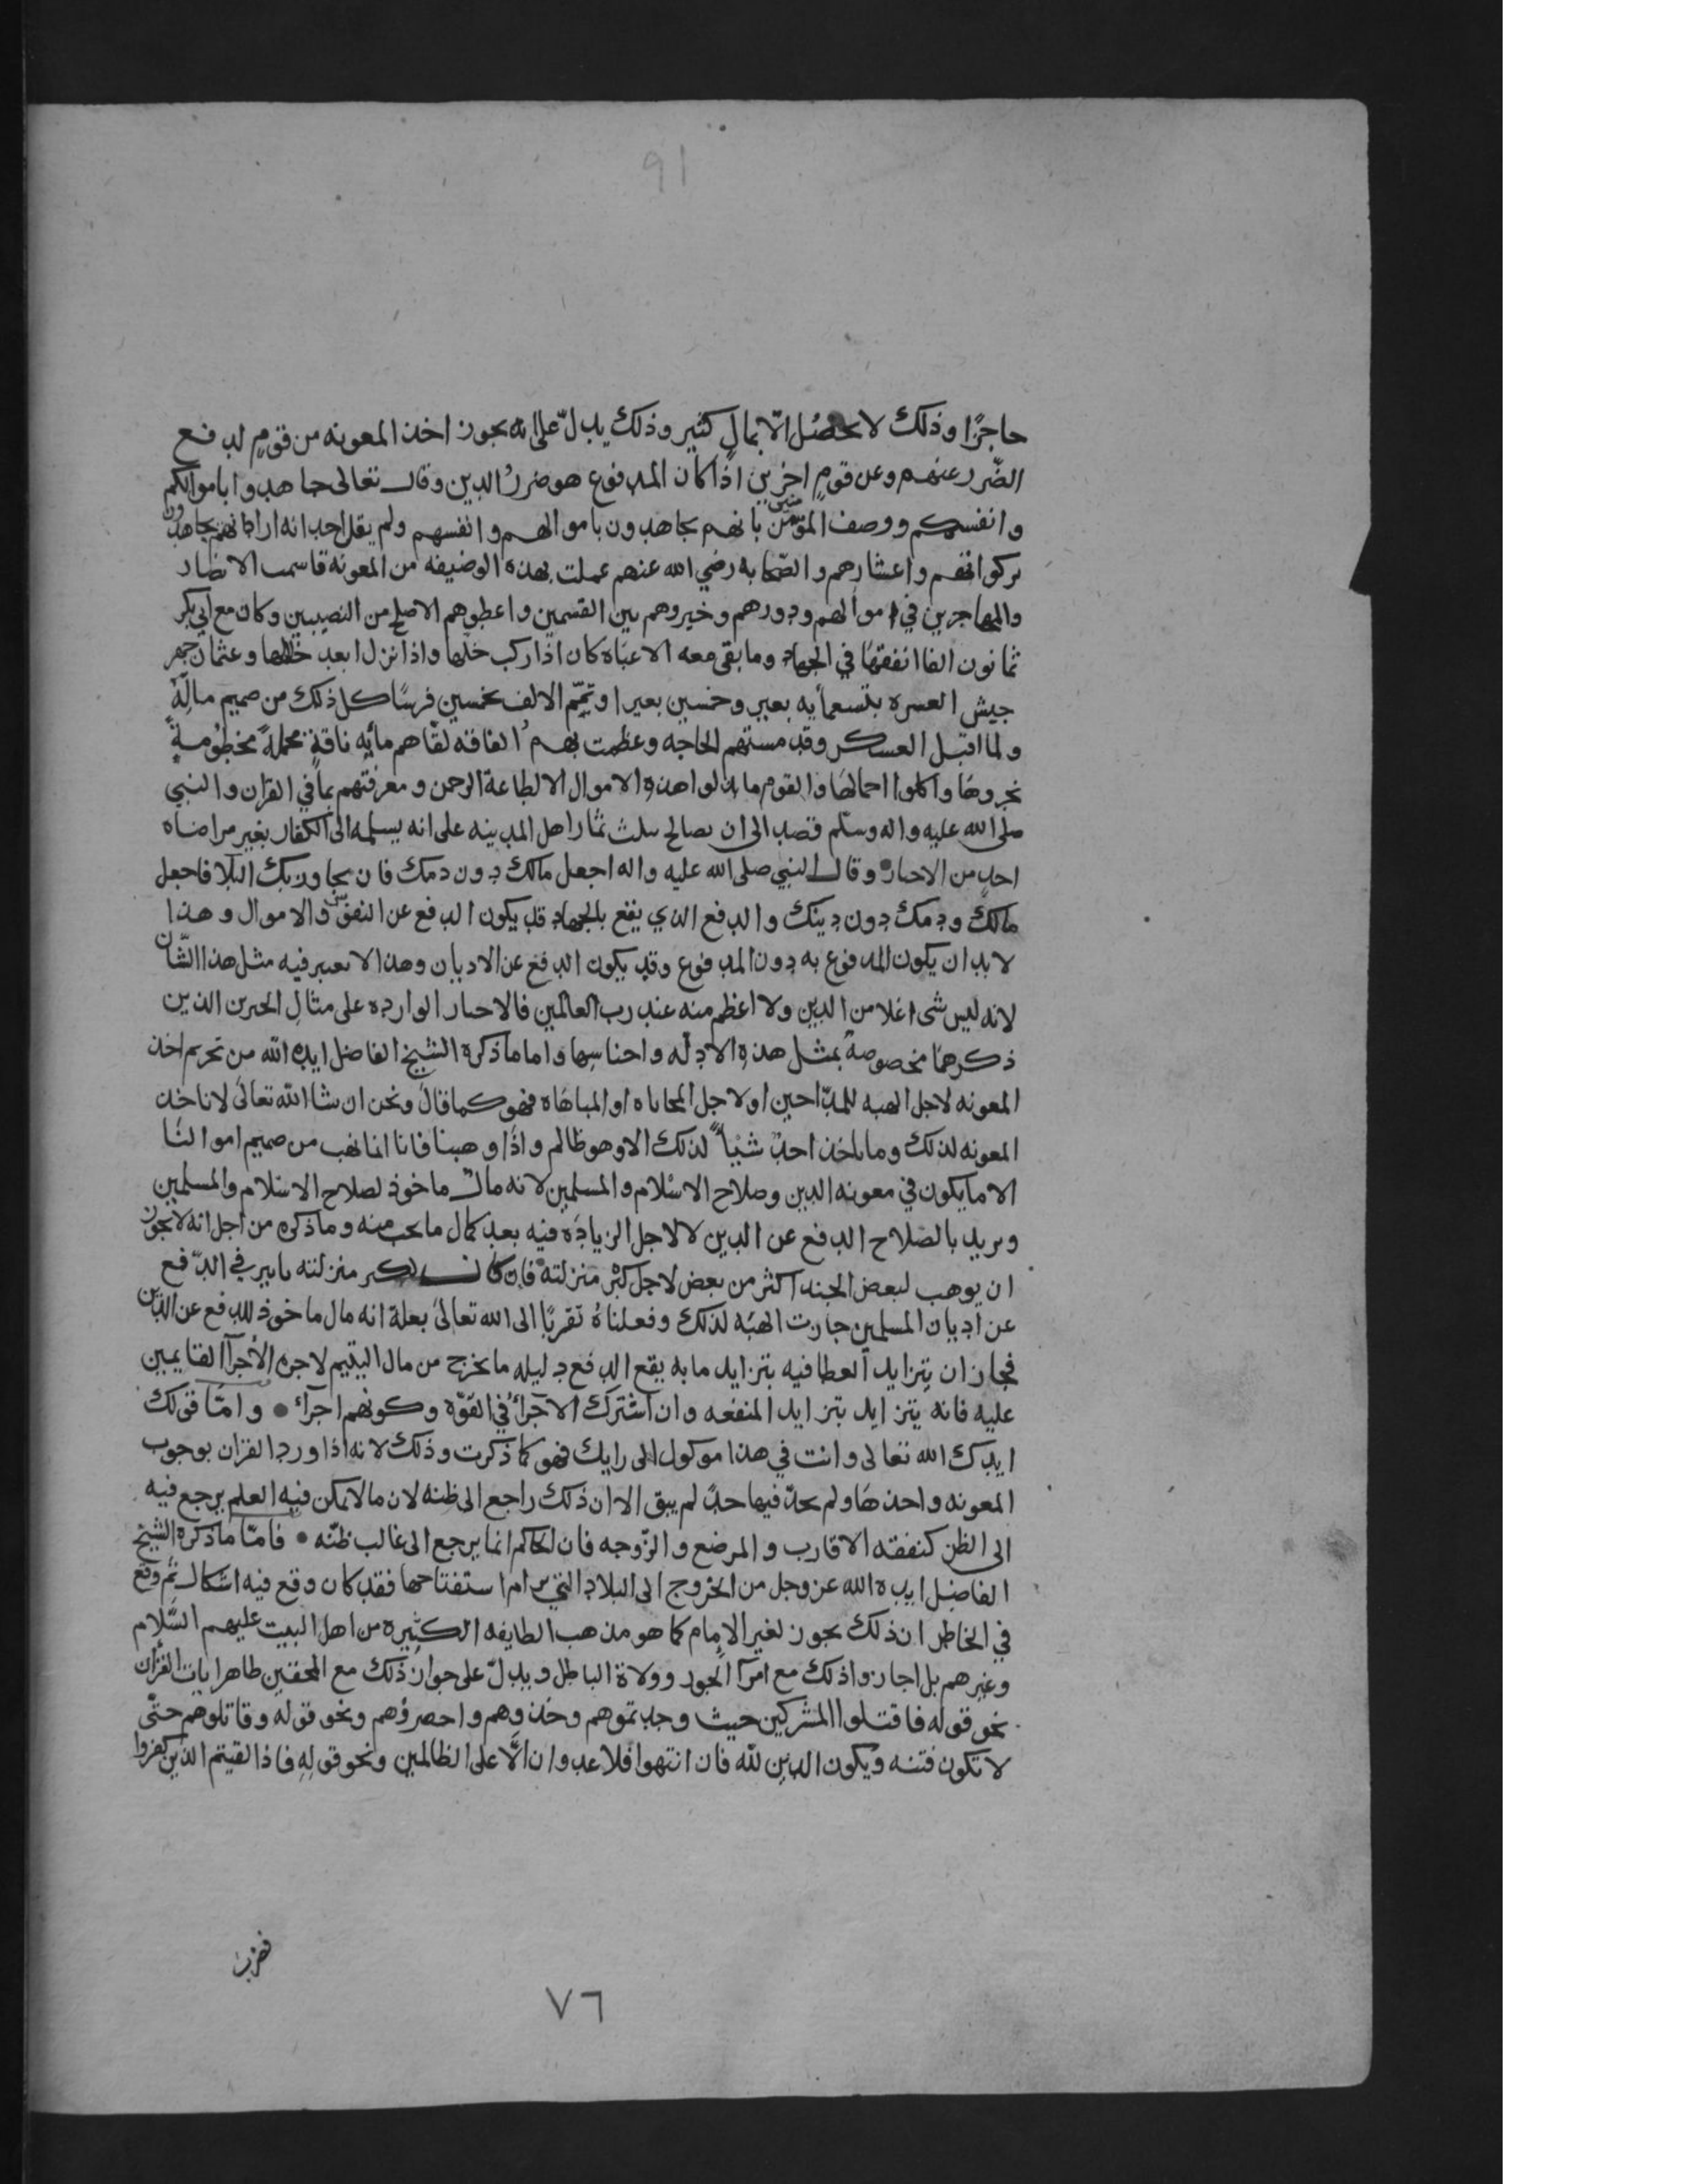 91
حاجزًا وذلك لا يحصل الّا بمالٍ كثير وذلك يدلّ على انه يجوز اخذ المعونه من قومٍ لدفع
الضّرر عنهم وعن قومٍ اخرين اذا كان المدفوع هو ضررُ الدين وقال تعالى جاهدوا باموالكم
وانفسكم ووصف المؤمنين بانهم يجاهدون باموالهم وانفسهم ولم يقل احد انه اراد انهم يجاهدون
بزكواتهم واعشارهم والصّحابه رضي الله عنهم عملت بهذه الوضيفه من المعونة قاسمت الانصار
والمهاجرين في اموالهم ودورهم وخيروهم بين القسمين واعطوهم الاصلح من النصيبين وكان مع ابي بكر
ثمانون الفا انفقها في الجهاد وما بقى معه الا عباة كان اذا ركب خلها واذا نزل ابعد خلالها وعثمان جهز
جيش العسره بتسعمأيه بعير وخمسين بعيرا وتمّم الالف بخمسين فرسًا كل ذلك من صميم مالِهِ
ولما اقبل العسكر وقد مستهم الحاجه وعظمت بهم الفاقه لقاهم مأيه ناقةٍ محملةً مخطومةً
نحروها واكلوا احمالها والقوم ما بذلوا هذه الاموال الا لطاعة الرحمن ومعرفتهم بما في القران والنبي
صلى الله عليه واله وسلّم قصد الى ان يصالح بثلث ثمار اهل المدينه على انه يسلمه الى الكفار بغير مراضاه
احدٍ من الاحبار وقال النبي صلى الله عليه واله اجعل مالك دون دمك فان تجاوز بك البلا فاجعل
مالك ودمك دون دينك والدفع الذي يقع بالجهاد قد يكون الدفع عن النفوس والاموال وهذا
لا بد ان يكون المدفوع به دون المدفوع وقد يكون الدفع عن الاديان وهذا لا يعتبر فيه مثل هذا الشّان
لانه ليس شى اغلا من الدين ولا اعظم منه عند رب العالمين فالاخبار الوارده على مثالِ الخبرين الذين
ذكرهما مخصوصةٌ بمثل هذه الادله واجناسِها واما ما ذكره الشيخ الفاضل ايده الله من تحريم اخذ
المعونه لاجل الهبه للمدّاحين او لاجل المحاباه او المباهاه فهو كما قال ونحن ان شا الله تعالى لا ناخذ
المعونه لذلك وما ياخذ احدٌ شيْأً لذلك الا وهو ظالم واذا وهبنا فانا انما نهب من صميم اموالنا
الا ما يكون في معونه الدين وصلاح الاسلام والمسلمين لانه مال ماخوذ لصلاح الاسلام والمسلمين
ونريد بالصّلاح الدفع عن الدين لا لاجل الزياده فيه بعد كمال ما يجب منه وما ذكره من اجل انه لا يجوز
ان يوهب لبعض الجند اكثر من بعض لاجل كبْر منزلته فان كان لكبر منزلته تاثير في الدّفع
عن اديان المسلمين جازت الهبه لذلك وفعلناهُ تقربًا الى الله تعالى بعلة انه مال ماخوذ للدفع عن الدّين
فجاز ان يتزايد العطا فيه بتزايد ما به يقع الدفع دليله ما يخرج من مال اليتيم لاجرة الأجرآ القايمين
عليه فانه يتزايد بتزايد المنفعه وان اشترك الأجرآء في القوّه وكونهم اجرآء • وامّا قولك
ايدك الله تعالى وانت في هذا موكول الى رايك فهو كما ذكرت وذلك لانه اذا ورد القران بوجوب
المعونه واخذها ولم يحدّ فيها حدًّ لم يبق الا ان ذلك راجع الى ظنه لان ما لا يمكن فيه العلم يرجع فيه
الى الظن كنفقه الاقارب والمرضع والزّوجه فان الحاكم انما يرجع الى غالب ظنّه • فامّا ما ذكره الشيخ
الفاضل ايده الله عز وجل من الخروج الى البلاد التي يرام استفتاحها فقد كان وقع فيه اشكال ثم وقع
في الخاطر ان ذلك يجوز لغير الامام كما هو مذهب الطايفه الكثيره من اهل البيت عليهم السّلام
وغيرهم بل اجازوا ذلك مع امرآ الجور وولاة الباطل ويدلّ على جواز ذلك مع المحقين ظاهر ايات القران
نحو قوله فاقتلوا المشركين حيث وجدتموهم وخذوهم واحصروهم ونحو قوله وقاتلوهم حتّى
لا تكون فتنه ويكون الدين للّه فان انتهوا فلا عدوان الّا على الظالمين ونحو قولِهِ فاذا لقيتم الذين كفروا
فضرب
٧٦